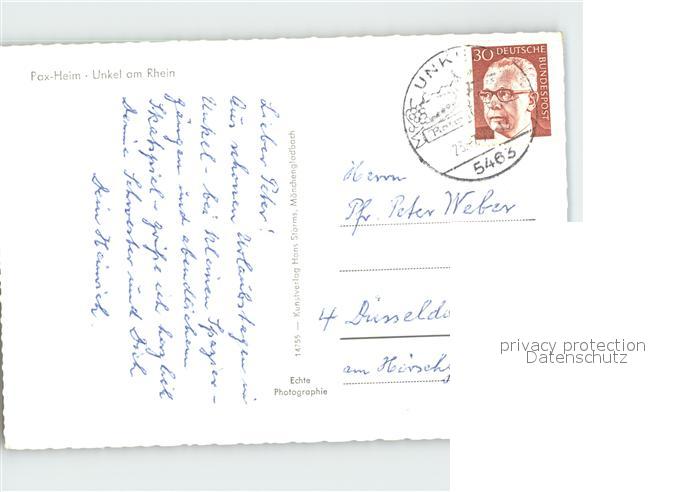 Pax-Heim · Unkel am Rhein
Lieber Peter!
Aus schönen Urlaubstagen in
Unkel – bei kleinen Spazier-
gängen und abendlichem
Skatspiel – grüße ich herzlich
Deine Schwester und Dich
Dein Heinrich.
14755 — Kunstverlag Hans Storms, Mönchengladbach
Echte
Photographie
UNK
5463
30 DEUTSCHE
BUNDESPOST
Herrn
Pfr. Peter Weber
4 Düsseldo
am Hirsch
privacy protection
Datenschutz